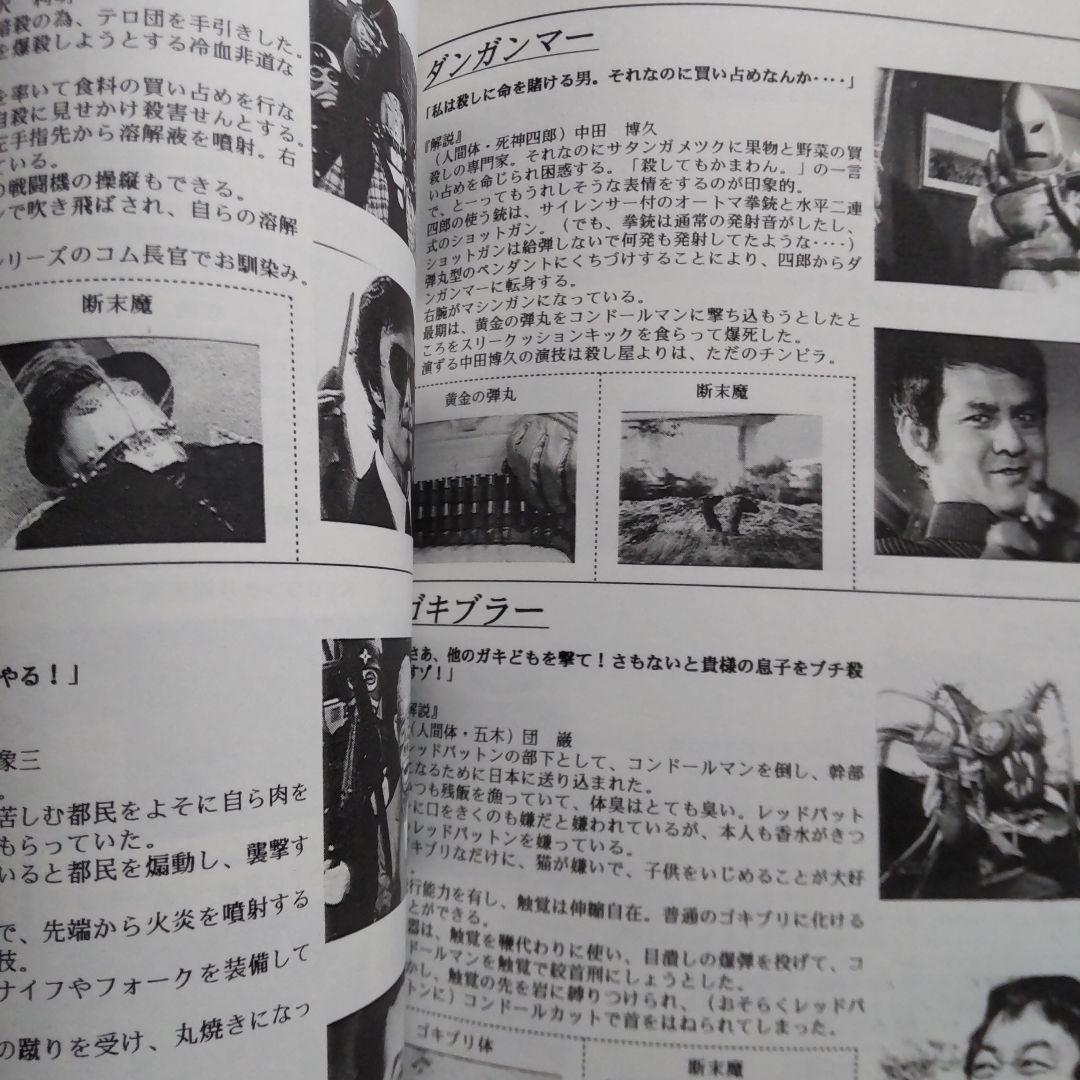 暗殺の為、テロ団を手引きした。
を爆殺しようとする冷血非道な
を率いて食料の買い占めを行な
自殺に見せかけ殺害せんとする。
左手指先から溶解液を噴射。右
ている。
の戦闘機の操縦もできる。
ンで吹き飛ばされ、自らの溶解
シリーズのコム長官でお馴染み。
断末魔
やる！」
象三
。
苦しむ都民をよそに自ら肉を
もらっていた。
いると都民を煽動し、襲撃す
で、先端から火炎を噴射する
技。
ナイフやフォークを装備して
の蹴りを受け、丸焼きになっ
ダンガンマー
「私は殺しに命を賭ける男。それなのに買い占めなんか‥‥」
『解説』
（人間体・死神四郎）中田　博久
殺しの専門家。それなのにサタンガメツクに果物と野菜の買
い占めを命じられ困惑する。「殺してもかまわん。」の一言
で、とーってもうれしそうな表情をするのが印象的。
四郎の使う銃は、サイレンサー付のオートマ拳銃と水平二連
式のショットガン。（でも、拳銃は通常の発射音がしたし、
ショットガンは給弾しないで何発も発射してたような‥‥）
弾丸型のペンダントにくちづけすることにより、四郎からダ
ンガンマーに転身する。
右腕がマシンガンになっている。
最期は、黄金の弾丸をコンドールマンに撃ち込もうとしたと
ころをスリークッションキックを食らって爆死した。
演ずる中田博久の演技は殺し屋よりは、ただのチンピラ。
黄金の弾丸
断末魔
ゴキブラー
さあ、他のガキどもを撃て！さもないと貴様の息子をブチ殺
すゾ！」
解説』
（人間体・五木）団　巌
レッドバットンの部下として、コンドールマンを倒し、幹部
になるために日本に送り込まれた。
いつも残飯を漁っていて、体臭はとても臭い。レッドバット
ンに口をきくのも嫌だと嫌われているが、本人も香水がきつ
レッドバットンを嫌っている。
キブリなだけに、猫が嫌いで、子供をいじめることが大好
。
行能力を有し、触覚は伸縮自在。普通のゴキブリに化ける
とができる。
器は、触覚を鞭代わりに使い、目潰しの爆弾を投げて、コ
ドールマンを触覚で絞首刑にしょうとした。
かし、触覚の先を岩に縛りつけられ、（おそらくレッドバ
トンに）コンドールカットで首をはねられてしまった。
ゴキブリ体
断末魔